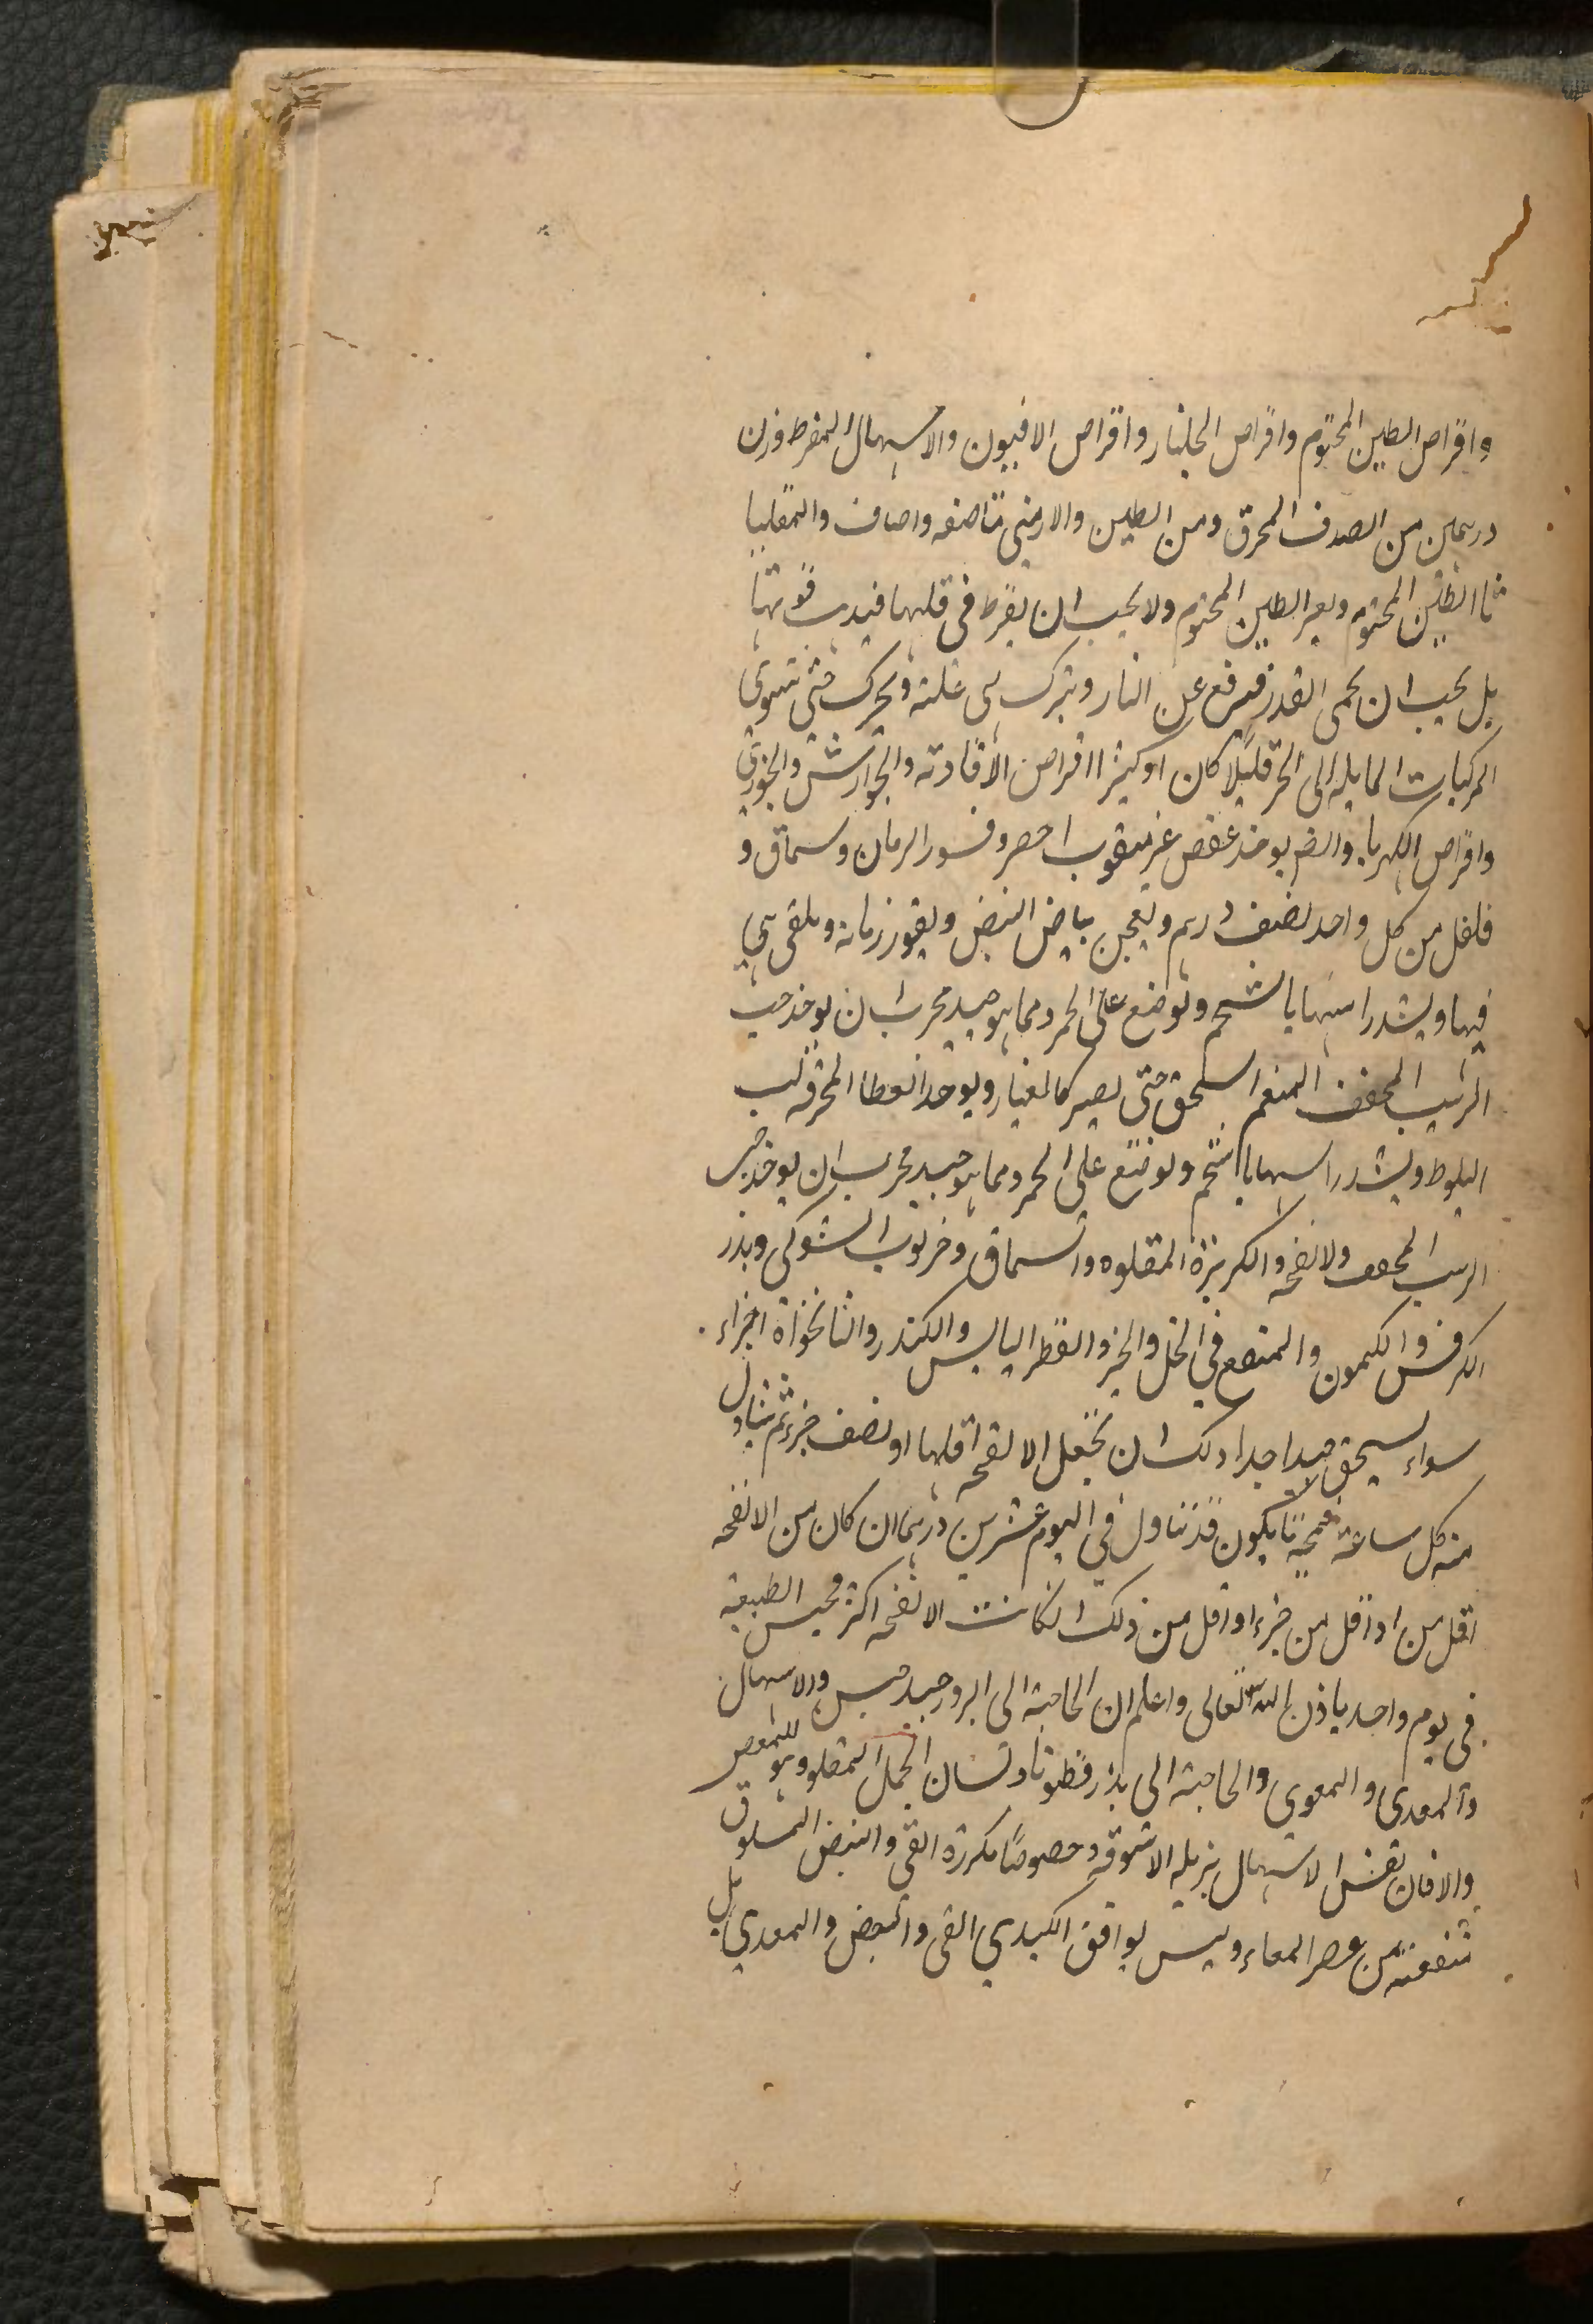 واقراص الطين المختوم واقراص الجلنار واقراص الافيون والاسهال المفرط وزن
درهمين من الصدف المحرق ومن الطين والارمنى مناصفه واصاف والمقليا
ثا الطين المختوم وبعر الطين المختوم ولا يجب ان يفرط فى قليها فيذهب قوتها
بل يجب ان يحمى القدر فيرفع عن النار ويترك فى غلته ويحرك حتى تستوى
المركبات المايله الى الحر قليلا كان او كثيرا اقراص الافادته والجوارشن والجوزى
واقراص الكهربا والضم يوخذ عفص غير مثقوب اخضر وقشور الرمان وسماق و
فلفل من كل واحد نصف درهم ويعجن ببياض البيض ويقور رمانه ويلقى فى
فيها ويشد راسها بالشحم وتوضع على الجمر ومما هو جيد مجرب ان يوخذ حب
الزبيب المجفف المنعم السحق حتى يصير كالغبار ويوخذ العظا المحرقه لب
البلوط ويشد راسها بالشحم وتوضع على الجمر ومما هو جيد مجرب ان يوخذ حب
الزبيب المجفف ولانفحه والكزبرة المقلوه والسماق وخرنوب الشوكى وبذر
الكرفس والكمون والمنقع في الخل والخبز والفطر اليابس والكندر والنانخواة اجزاء
سواء يسحق جيدا جدا ولك ان تجعل الانفحه اقلها او نصف جزء ثم تتناول
منه كل ساعة تا يكون قد تناول في اليوم عشرين درهما ان كان من الانفحه
اقل من اواقل من جزء او اقل من ذلك ان كانت الانفحه اكثر محبس الطبيعة
فى يوم واحد باذن الله تعالى واعلم ان الحاجة الى البرور جيد حبس والاسهال
والمعدى والمعوى والحاجة الى بذر قطونا ولسان الحمل المقلو وهو للمغص
والافان نفس الاسهال يزيله الاسوقه وخصوصا مكررة القى والبيض المسلوق
تنفعته من عصر المعاء وليس يوافق الكبدي القى والبيض والمعدي بل